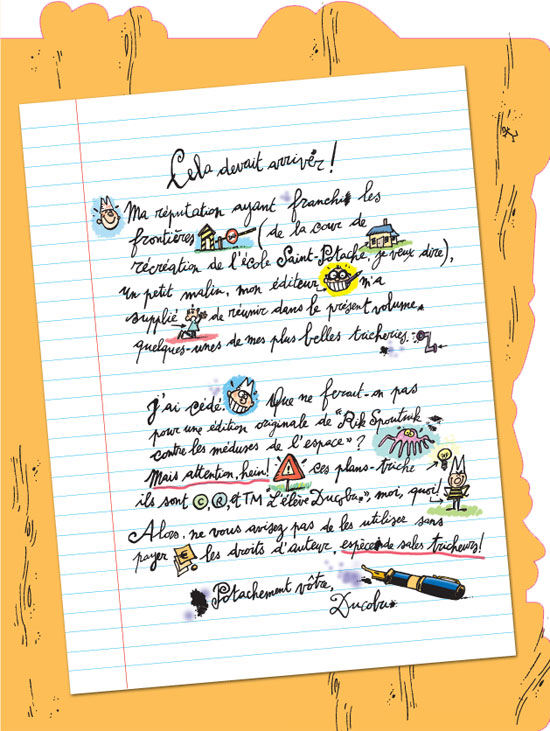 Cela devait arriver !
Ma réputation ayant franchi les
frontières (de la cour de
récréation de l'école Saint-Potache, je veux dire),
un petit malin, mon éditeur m'a
supplié de réunir dans le présent volume
quelques-unes de mes plus belles tricheries.
J'ai cédé. Que ne ferait-on pas
pour une édition originale de "Rik Spoutnik
contre les méduses de l'espace" ?
Mais attention, hein ! ces plans-triche
ils sont ©, ®, et TM "L'élève Ducobu", moi, quoi !
Alors, ne vous avisez pas de les utiliser sans
payer € les droits d'auteur, espèce de sales tricheurs !
Potachement vôtre,
Ducobu.